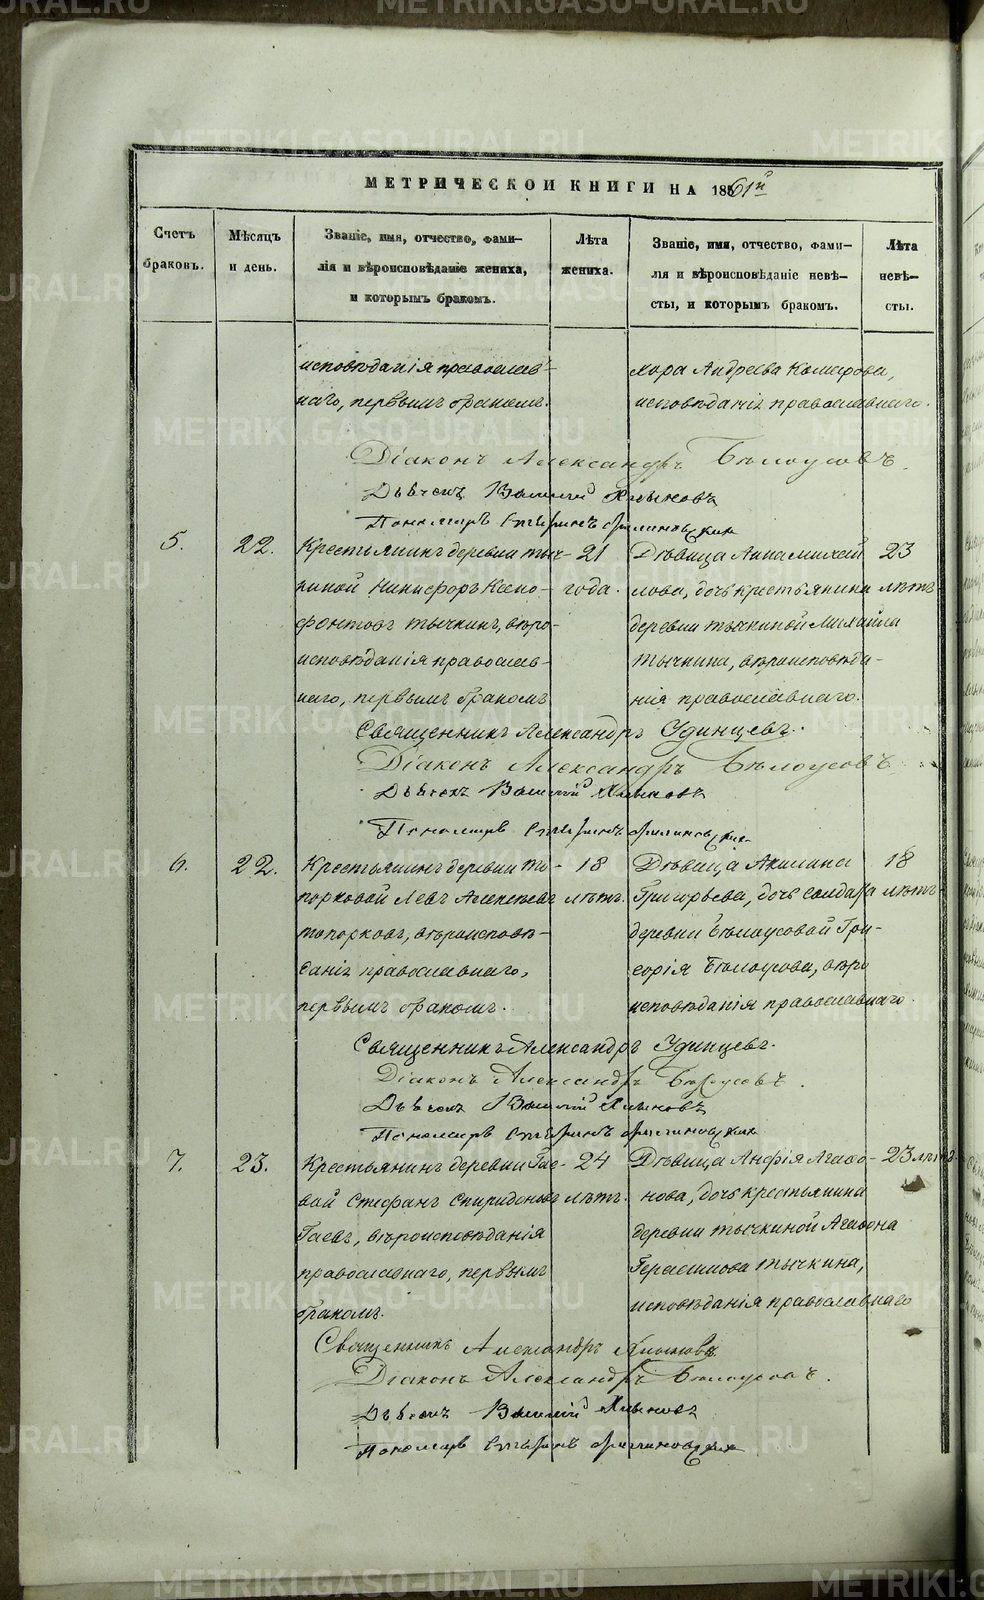 МЕТРИЧЕСКОЙ КНИГИ НА 1861й
Счетъ браковъ.
Мѣсяцъ и день.
Званіе, имя, отчество, фами-
лія и вѣроисповѣданіе жениха,
и которымъ бракомъ.
Лѣта жениха.
Званіе, имя, отчество, фами-
лія и вѣроисповѣданіе невѣ-
сты, и которымъ бракомъ.
Лѣта невѣ-
сты.
исповѣданія православ-
наго, первымъ бракомъ.
хора Андреева Комарова,
исповѣданія православнаго.
Діаконъ Александръ Бѣлоусовъ.
Дьячекъ Василій Хлыновъ
Пономарь
5.
22.
Крестьянинъ деревни Тыч-
киной Никифоръ Ксено-
фонтовъ Тычкинъ, вѣро-
исповѣданія православ-
наго, первымъ бракомъ
21
года.
Дѣвица Анна Михай
лова, дочь крестьянина
деревни Тычкиной Михайла
Тычкина, вѣроисповѣда-
нія православнаго.
23
лѣтъ
Священникъ Александръ Удинцевъ.
Діаконъ Александръ Бѣлоусовъ
Дьячекъ Василій Хлыновъ
Пономарь
6.
22.
Крестьянинъ деревни То-
порковой Левъ Алексѣевъ
Топорковъ, вѣроисповѣ-
данія православнаго,
первымъ бракомъ.
18
лѣтъ.
Дѣвица Акилина
Григорьева, дочь солдата
деревни Бѣлоусовой Гри-
горія Бѣлоусова, вѣро
исповѣданія православнаго.
18
лѣтъ
Священникъ Александръ Удинцевъ.
Діаконъ Александръ Бѣлоусовъ.
Дьячекъ Василій Хлыновъ
Пономарь
7.
23.
Крестьянинъ деревни Гае-
вой Стефанъ Спиридоновъ
Гаевъ, вѣроисповѣданія
православнаго, первымъ
бракомъ.
24
лѣтъ.
Дѣвица Анфія Агаѳо-
нова, дочь крестьянина
деревни Тычкиной Агаѳона
Герасимова Тычкина,
исповѣданія православнаго
23 лѣтъ
Священникъ Александръ Хлыновъ.
Діаконъ Александръ Бѣлоусовъ.
Дьячекъ Василій Хлыновъ
Пономарь
METRIKI.GASO-URAL.RU